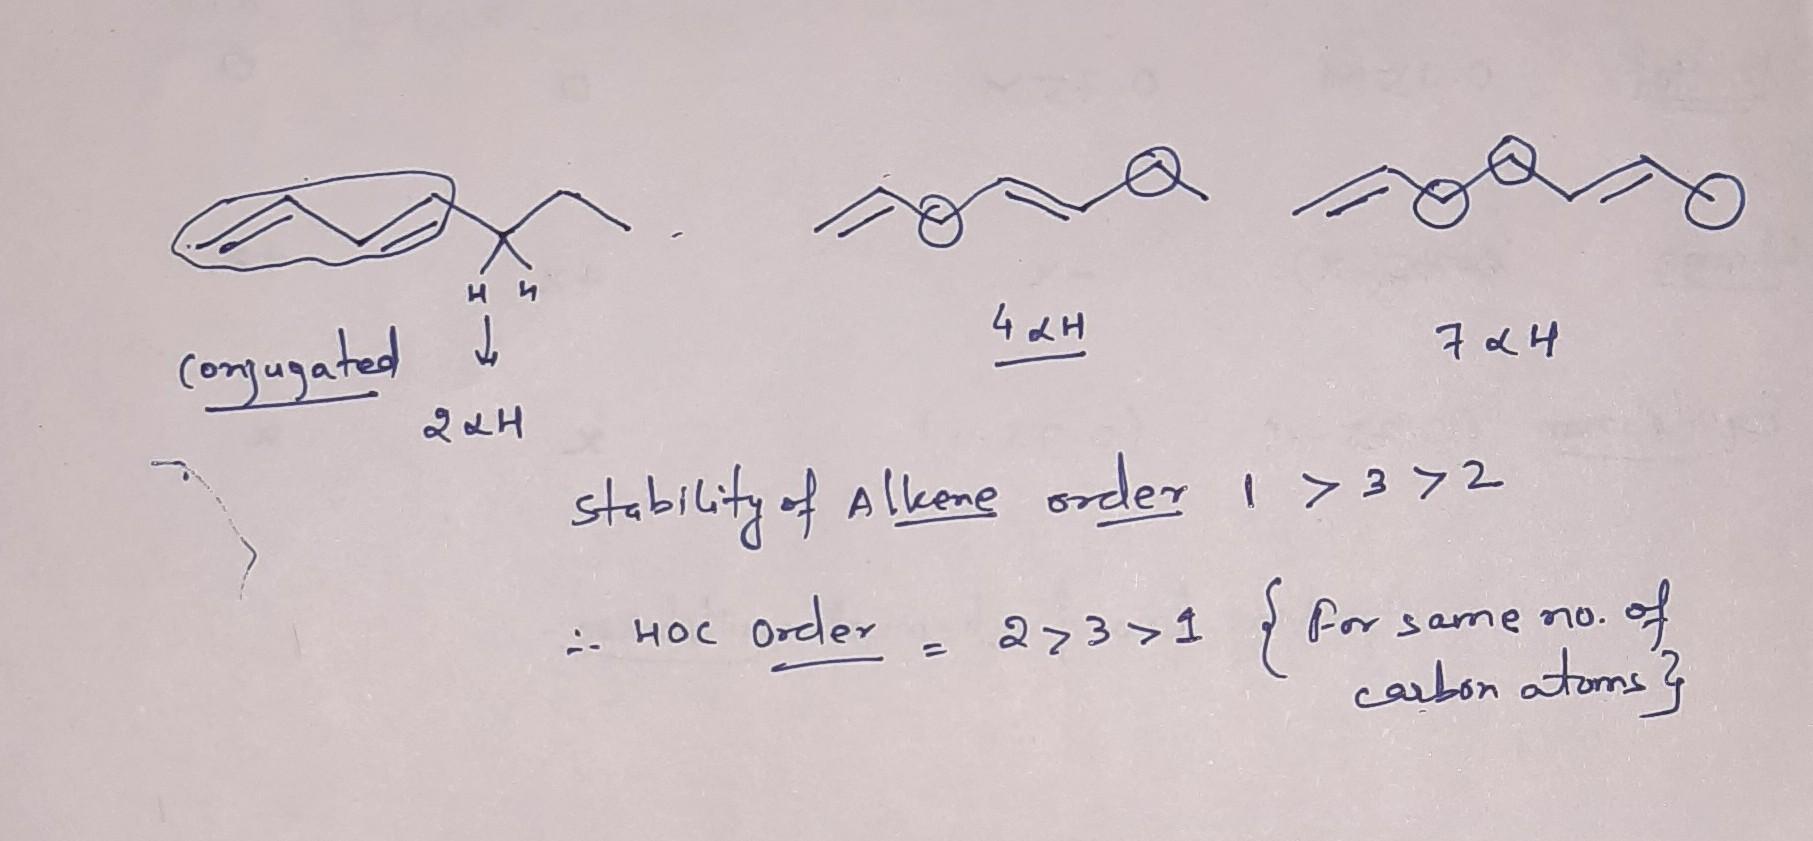 H H
conjugated
2 αH
4 αH
7 αH
Stability of Alkene order 1 > 3 > 2
∴ HOC Order = 2 > 3 > 1 { For same no. of
carbon atoms }